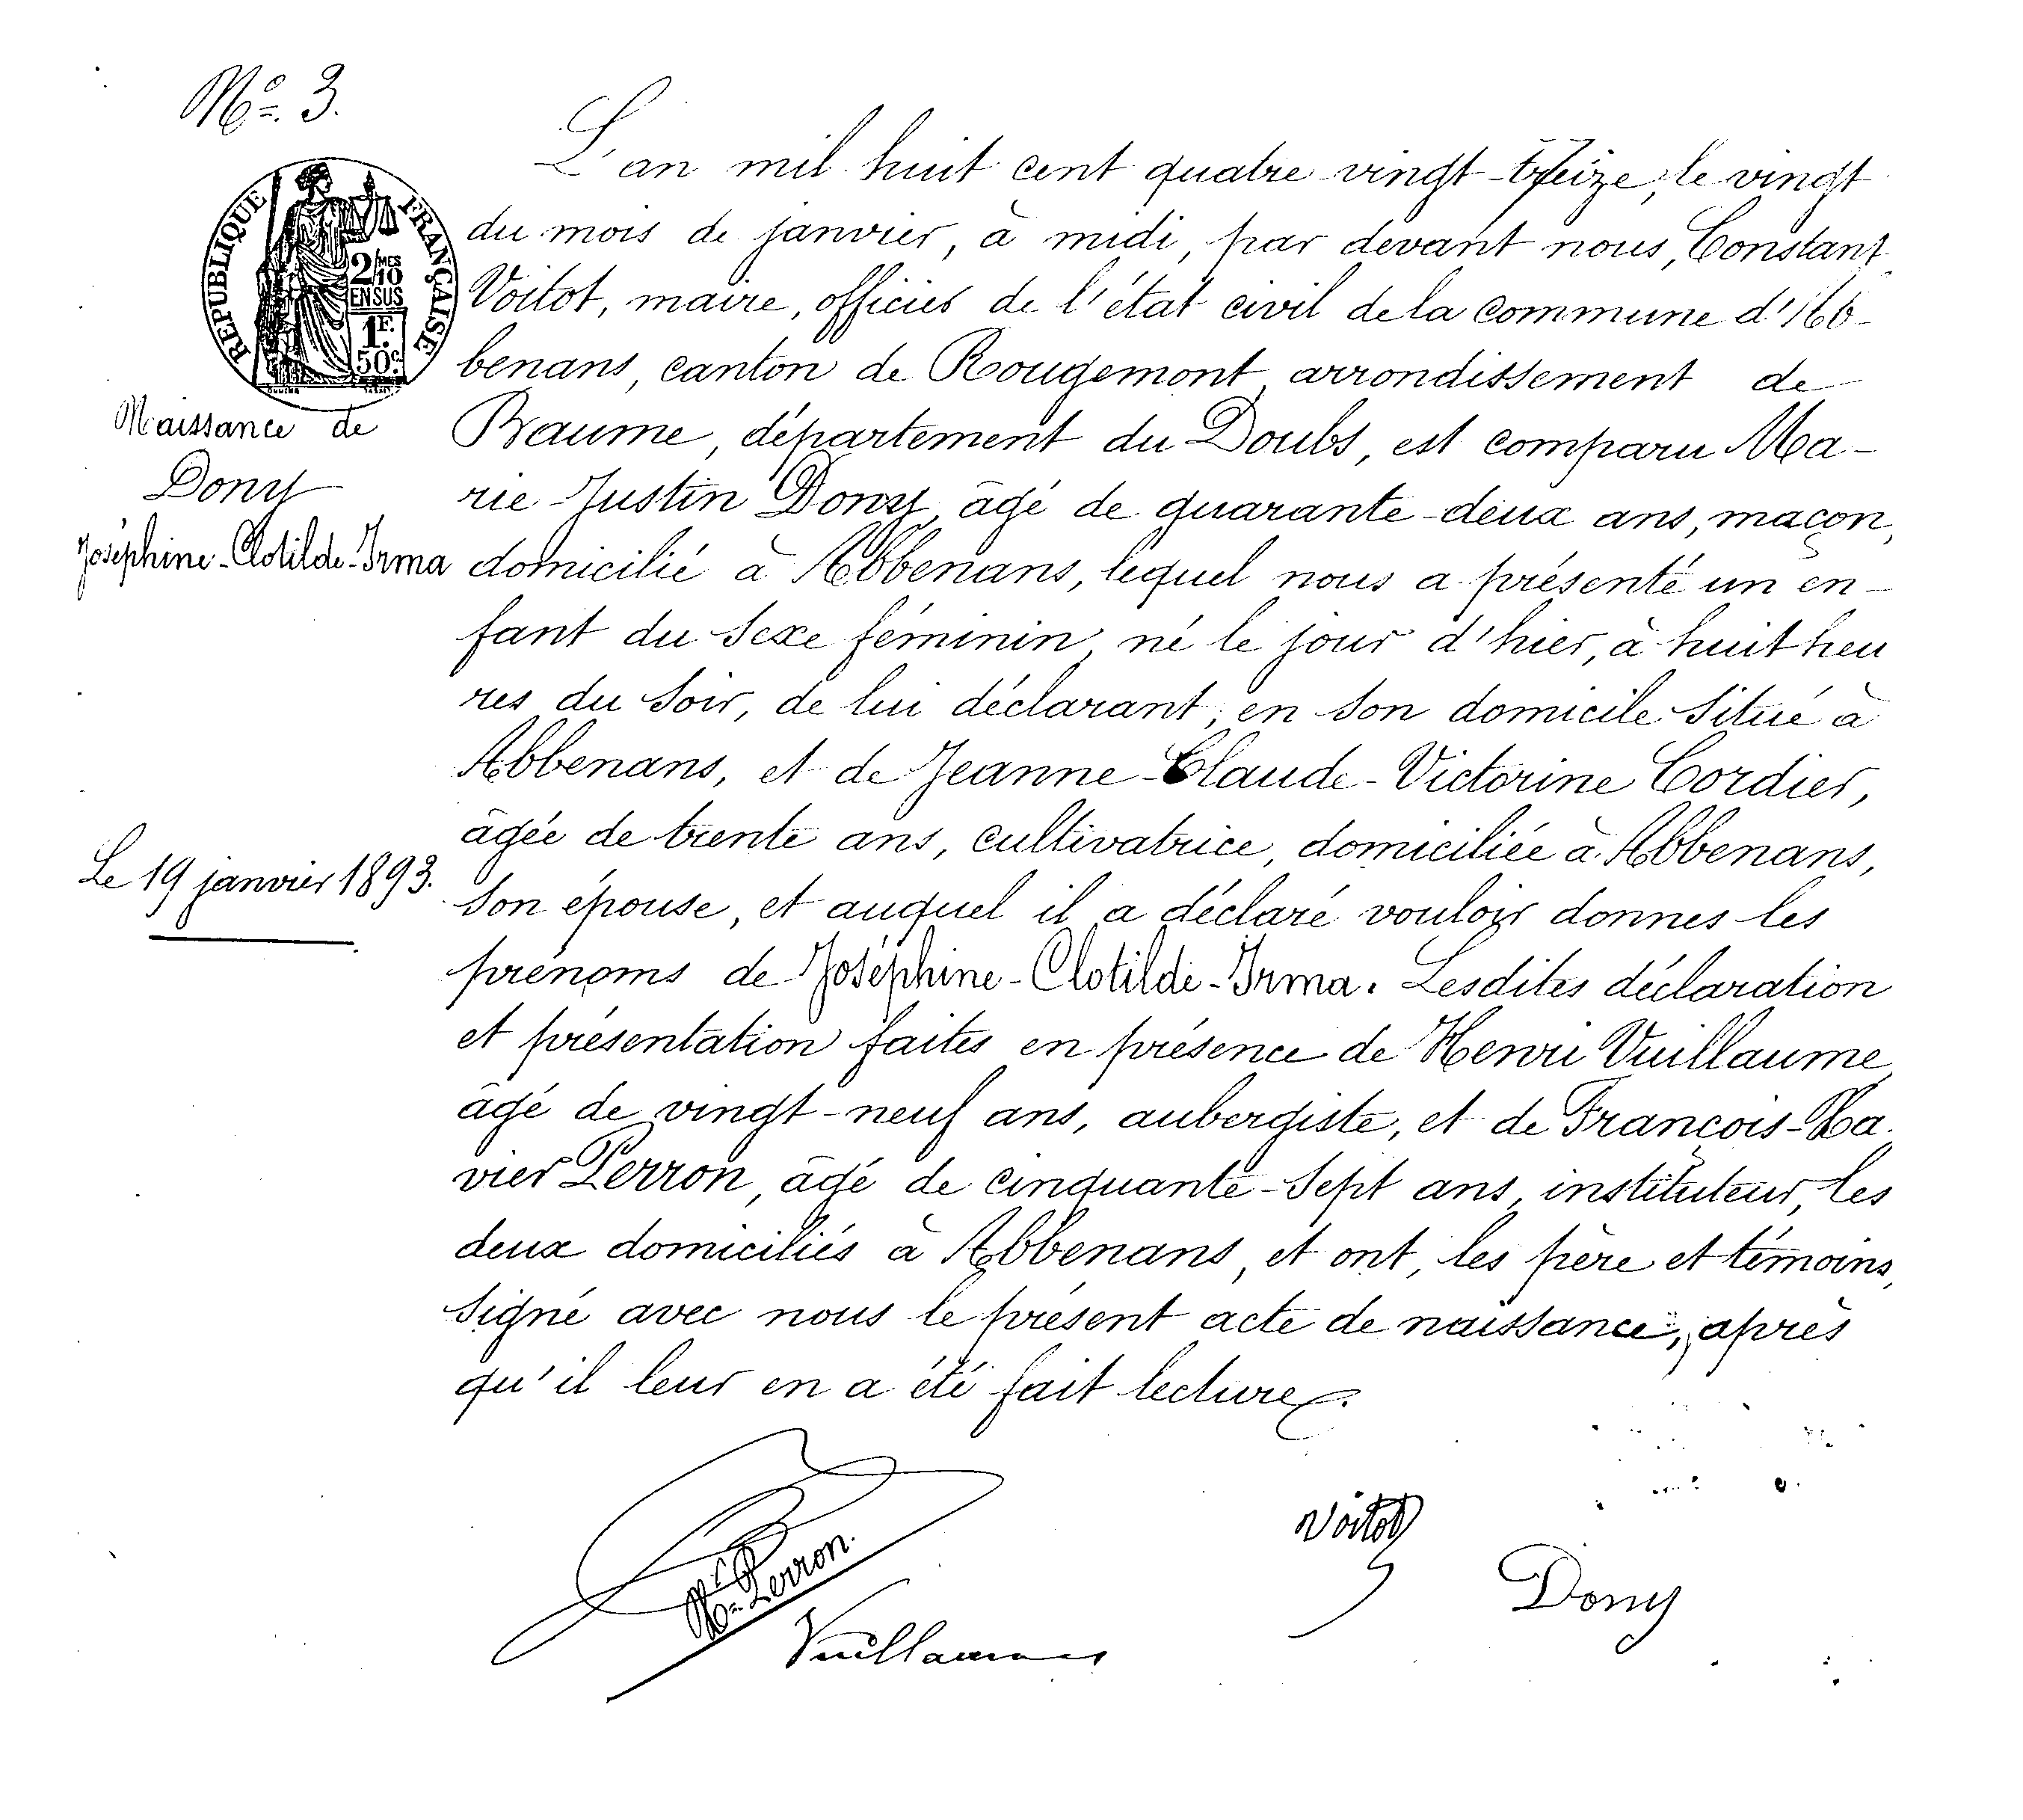 N° 3.
RÉPUBLIQUE FRANÇAISE
2/MES 10
EN SUS
1F.
50c.
Naissance de
Dony
Joséphine-Clotilde-Irma
Le 19 janvier 1893.
L'an mil huit cent quatre vingt-treize, le vingt
du mois de janvier, à midi, par devant nous, Constant
Voitot, maire, officier de l'état civil de la commune d'Ab-
benans, canton de Rougemont, arrondissement de
Baume, département du Doubs, est comparu Ma-
rie-Justin Dony, âgé de quarante-deux ans, maçon,
domicilié à Abbenans, lequel nous a présenté un en-
fant du sexe féminin, né le jour d'hier, à huit heu
res du soir, de lui déclarant, en son domicile situé à
Abbenans, et de Jeanne-Claude-Victorine Cordier,
âgée de trente ans, cultivatrice, domiciliée à Abbenans,
son épouse, et auquel il a déclaré vouloir donner les
prénoms de Joséphine-Clotilde-Irma. Lesdites déclaration
et présentation faites en présence de Henri Vuillaume,
âgé de vingt-neuf ans, aubergiste, et de François-Xa
vier Perron, âgé de cinquante-sept ans, instituteur, les
deux domiciliés à Abbenans, et ont, les père et témoins,
signé avec nous le présent acte de naissance, après
qu'il leur en a été fait lecture.
Voitot
Perron.
Dony
Vuillaume